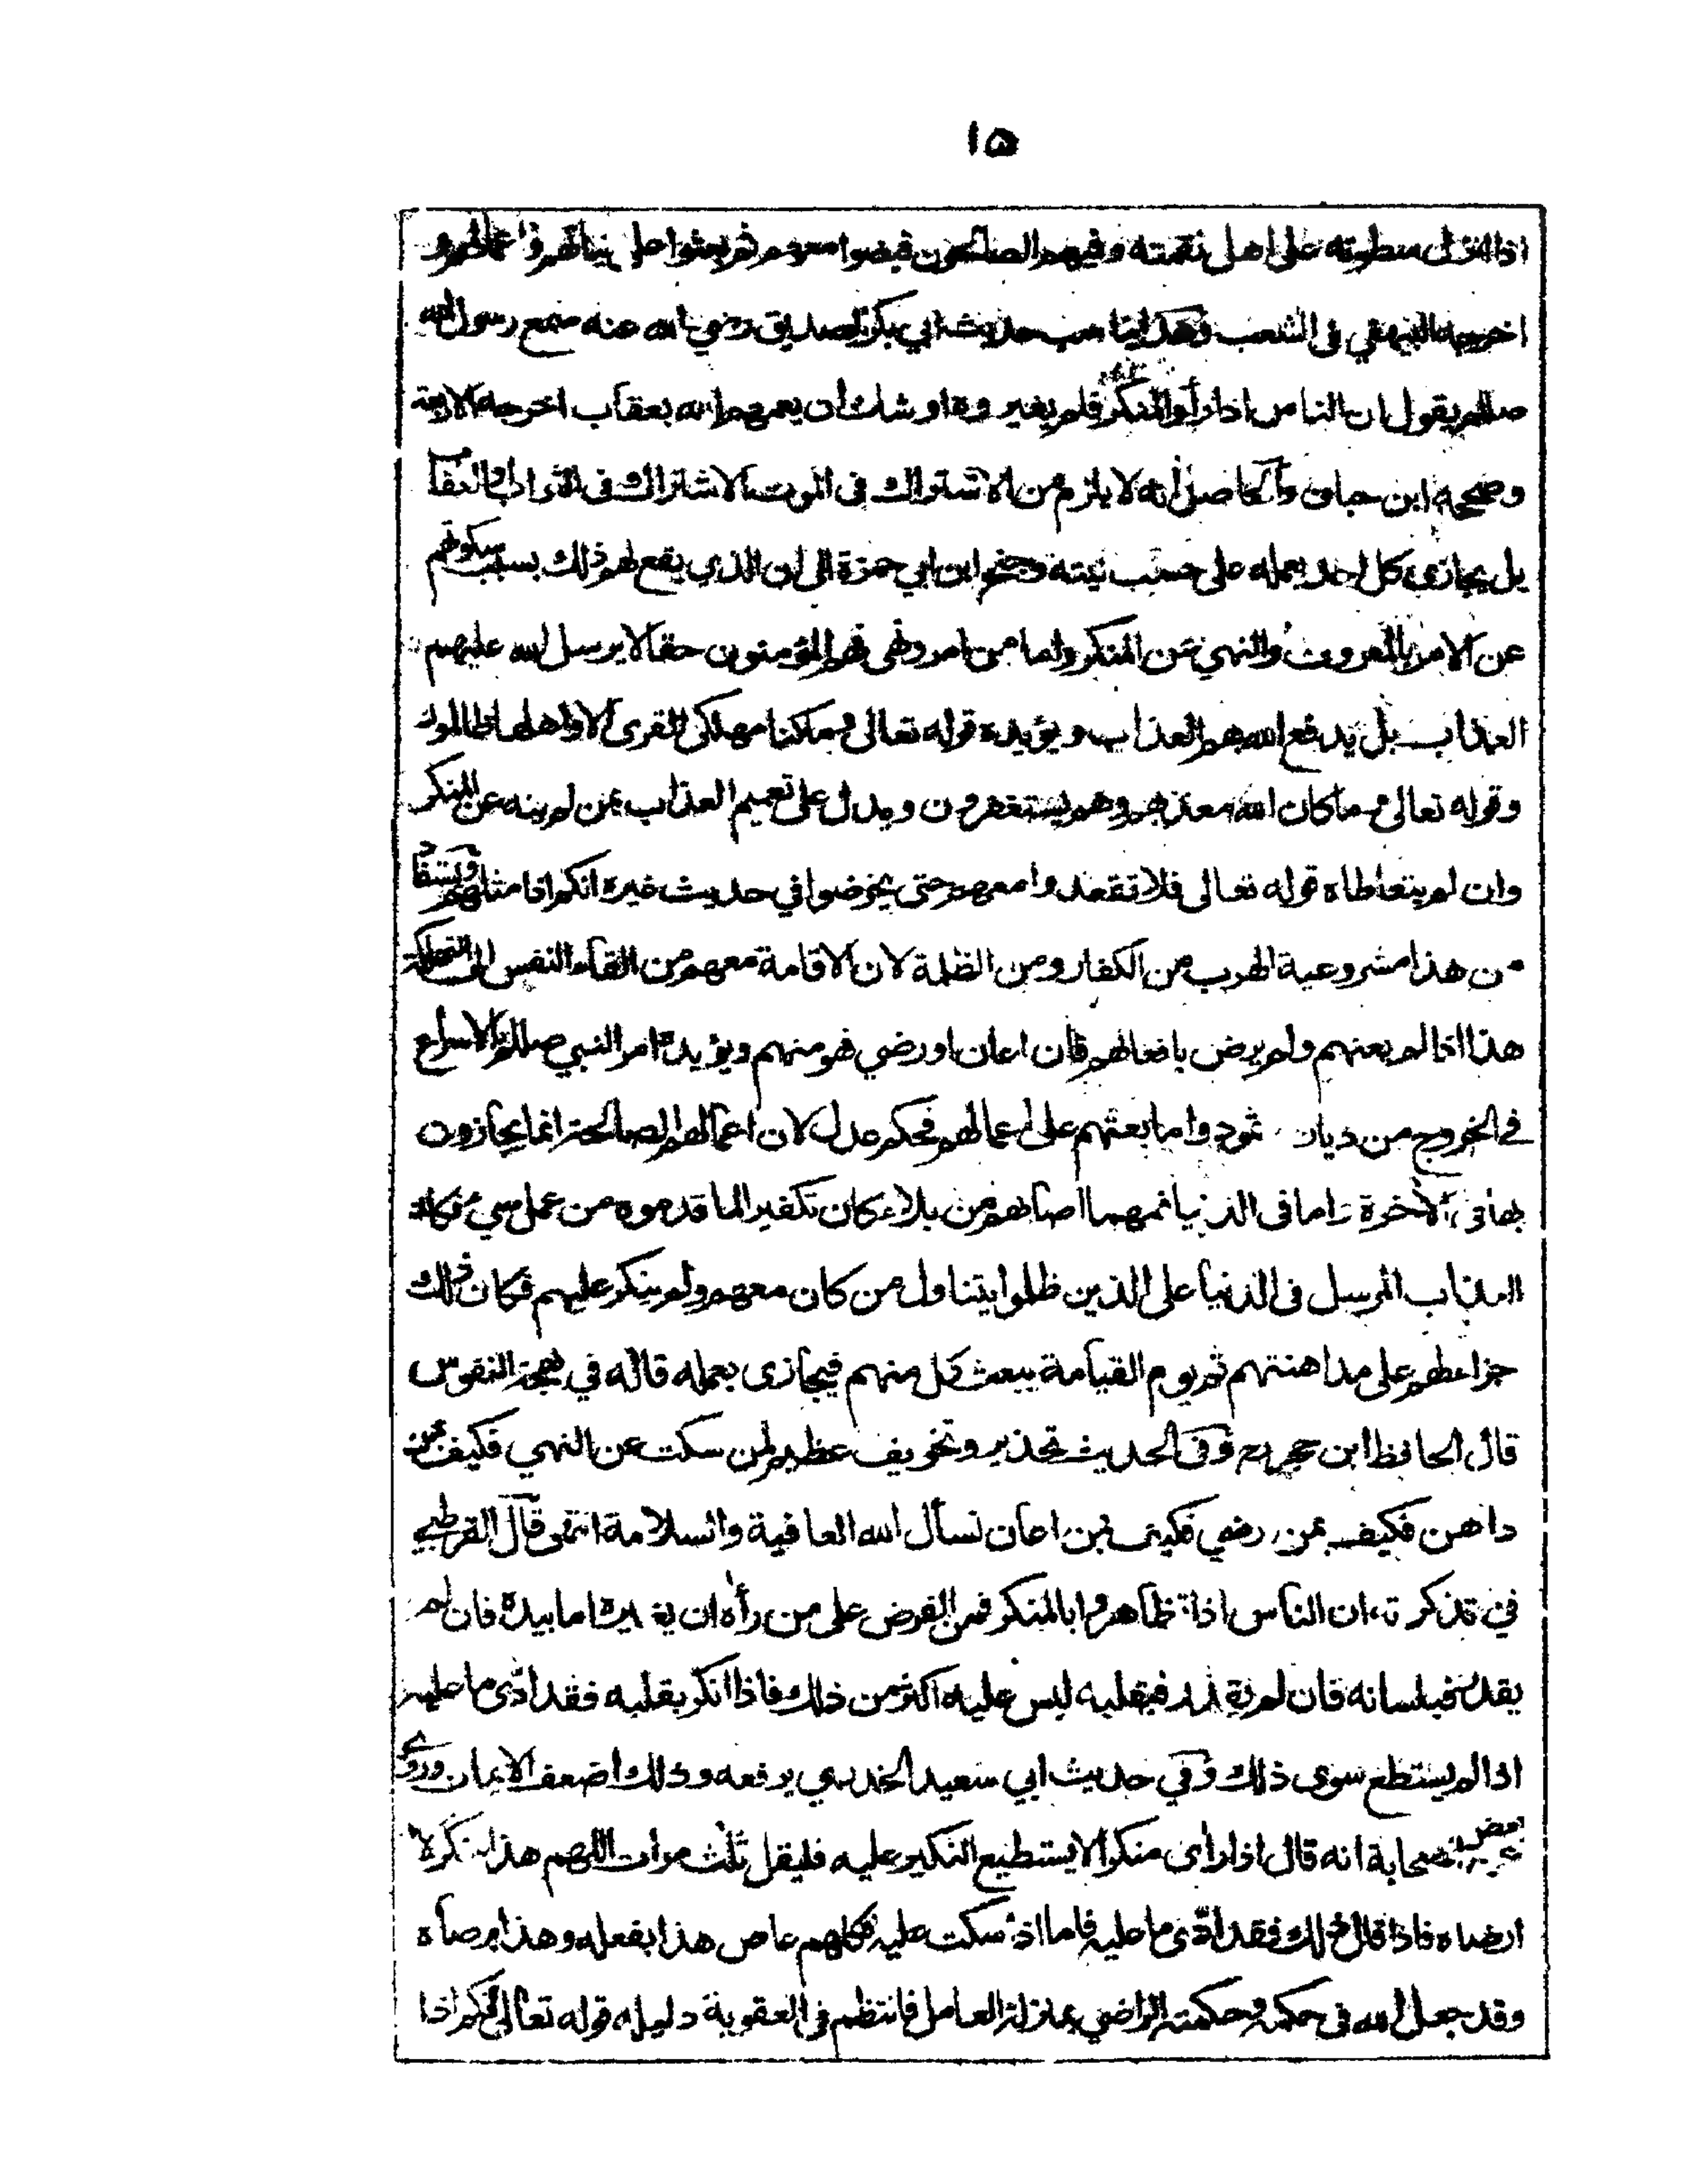 ١٥
اذا انزل سطوته على اهل نقمته وفيهم الصالحون قبضوا معهم ثم بعثوا على نياتهم واعمالهم و
اخرجه البيهقي فى الشعب وهكذا يناسب حديث ابي بكر الصديق رضي الله عنه سمع رسول الله
صللم يقول ان الناس اذا رأوا المنكر فلم يغيروه اوشك ان يعمهم الله بعقاب اخرجه الاربعة
وصححه ابن حبان والحاصل انه لا يلزم من الاشتراك فى الموت الاشتراك فى الثواب والعقاب
بل يجازى كل احد بعمله على حسب نيته وجنح ابن ابي جمرة الى ان الذي يقع لهم ذلك بسبب سكوتهم
عن الامر بالمعروف والنهي عن المنكر واما من امر ونهى فهم المؤمنون حقا لا يرسل الله عليهم
العذاب بل يدفع الله بهم العذاب ويؤيده قوله تعالى وما كنا مهلكى القرى الا واهلها ظالمون
وقوله تعالى وما كان الله معذبهم وهم يستغفرون ويدل على تعميم العذاب بمن لم ينه عن المنكر
وان لم يتعاطاه قوله تعالى فلا تقعدوا معهم حتى يخوضوا في حديث غيره انكم اذا مثلهم ويستفاد
من هذا مشروعية الهرب من الكفار ومن الظلمة لان الاقامة معهم من القاء النفس الى التهلكة
هذا اذا لم يعنهم ولم يرض بافعالهم فان اعان او رضي فهو منهم ويؤيده امر النبي صللم بالاسراع
في الخروج من ديار ثمود واما بعثهم على اعمالهم فحكم عدل لان اعمالهم الصالحة انما يجازون
بها فى الآخرة واما فى الدنيا فمهما اصابهم من بلاء كان تكفيرا لما قدموه من عمل سيء فكان
العذاب المرسل فى الدنيا على الذين ظلموا يتناول من كان معهم ولم ينكر عليهم فكان ذلك
جزاء لهم على مداهنتهم ثم يوم القيامة يبعث كل منهم فيجازى بعمله قاله في بهجة النفوس
قال الحافظ ابن حجر رح وفى الحديث تحذير وتخويف عظيم لمن سكت عن النهي فكيف بمن
داهن فكيف بمن رضي فكيف بمن اعان نسأل الله العافية والسلامة انتهى قال القرطبي
في تذكرته ان الناس اذا تظاهروا بالمنكر فمن الفرض على من رأه ان يغيره اما بيده فان لم
يقدر فبلسانه فان لم يقدر فبقلبه ليس عليه اكثر من ذلك فاذا انكر بقلبه فقد ادّى ما عليه
اذا لم يستطع سوى ذلك وفي حديث ابي سعيد الخدري يرفعه وذلك اضعف الايمان وروى
بعض الصحابة انه قال اذا رأى منكرا لا يستطيع النكير عليه فليقل ثلث مرات اللهم هذا منكر لا
ارضاه فاذا قال ذلك فقد ادّى ما عليه فاما اذا سكت عليه فكلهم عاص هذا بفعله وهذا برضاه
وقد جعل الله فى حكمه وحكمته الراضي بمنزلة العامل فانتظم فى العقوبة دليله قوله تعالى انكم اذا